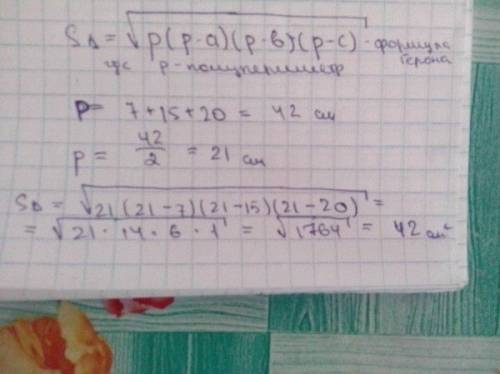 S△ = √p(p-a)(p-в)(p-c) - формула Герона
где p - полупериметр
P = 7+15+20 = 42 см
p = 42/2 = 21 см
S△ = √21(21-7)(21-15)(21-20) =
= √21·14·6·1 = √1764 = 42 см²